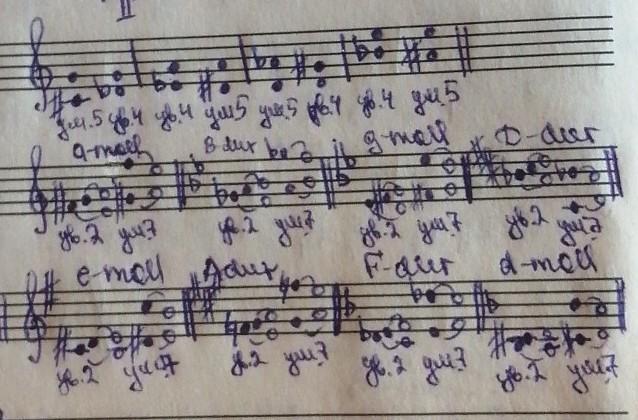 II
ум.5 ув.4 ув.4 ум5 ум.5 ув.4 ув.4 ум.5
a-moll B-dur g-moll D-dur
ув.2 ум.7 ув.2 ум.7 ув.2 ум.7 ув.2 ум.7
e-moll A-dur F-dur d-moll
ув.2 ум.7 ув.2 ум.7 ув.2 ум.7 ув.2 ум.7